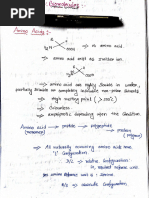 Biomolecules :-
Amino Acids :-
R
H
COOH
⇒ α amino acid
⇒ amino acid exist as zwitter ion
R
H
COO⁻
⇒ amino acid are highly soluble in water,
partially soluble or completely insoluble non polar solvents
⇒ High melting point ( > 200°C )
⇒ Colourless
⇒ amphoteric depending upon the condition
Amino acid → peptide → polypeptide
(monomer) → protein (folding)
⇒ All naturally occurring amino acid have
'L' Configuration
D/L → relative configuration
R/S → absolute configuration